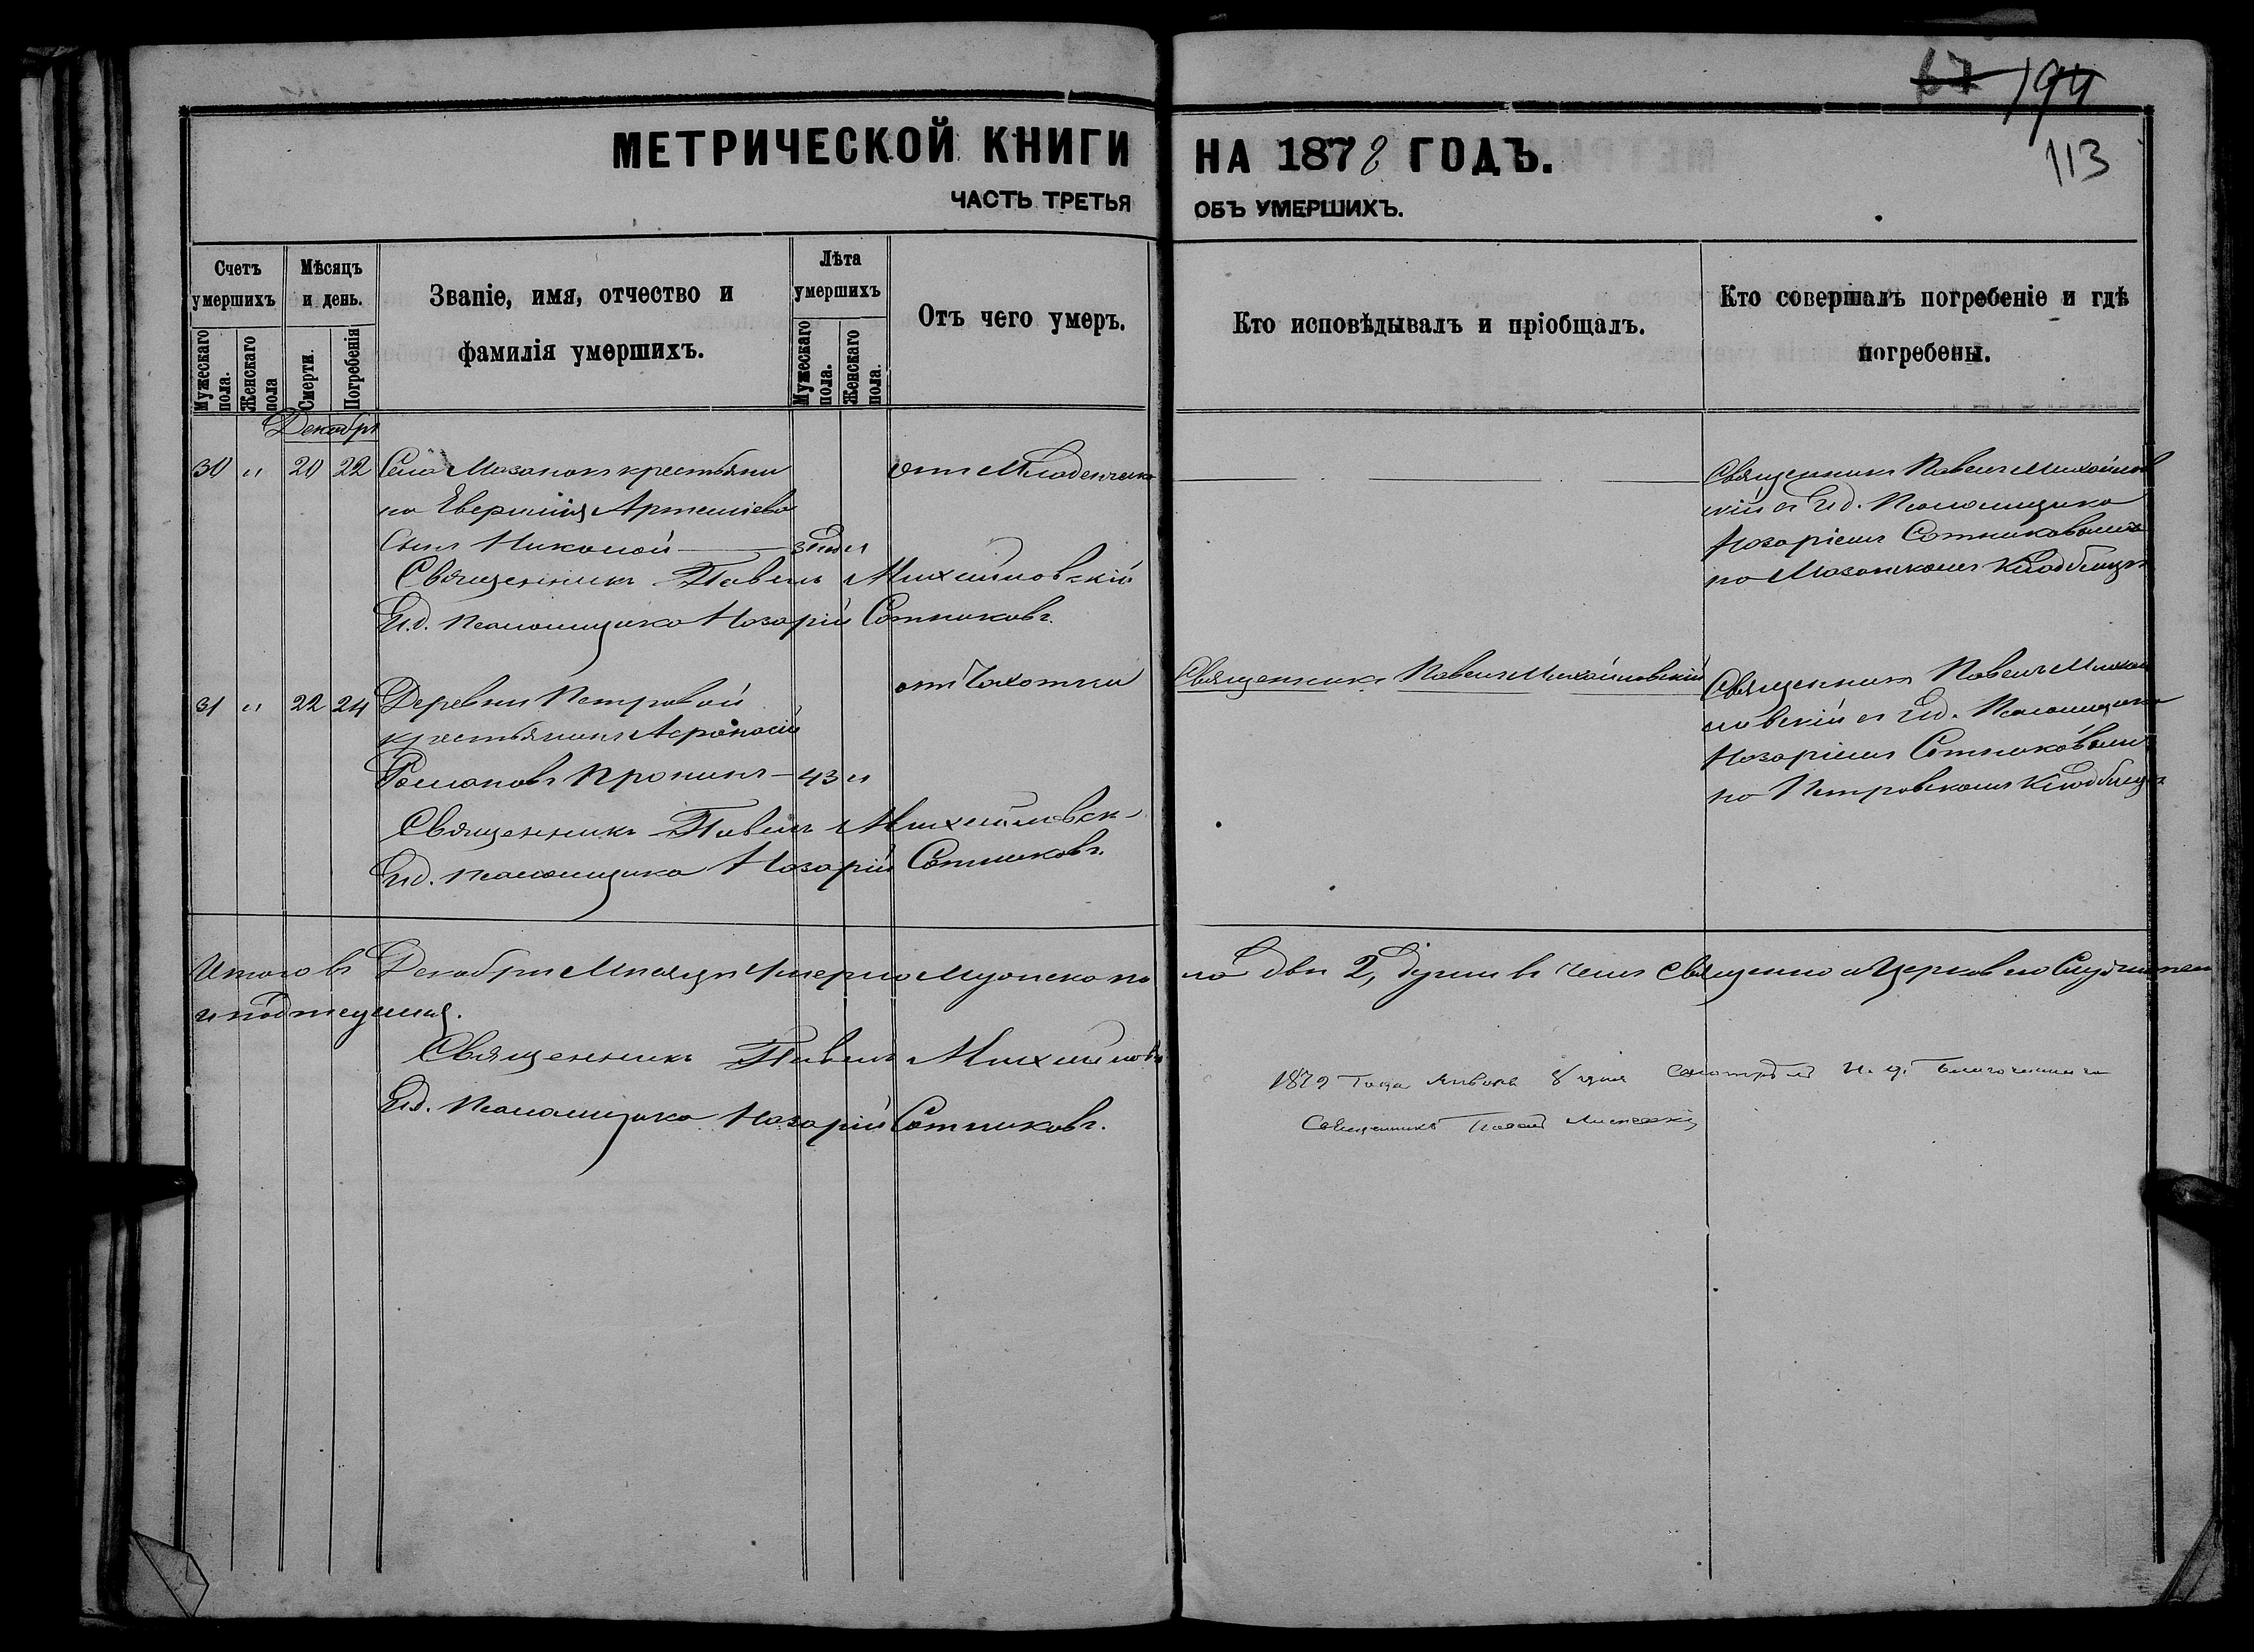 67 194
113
МЕТРИЧЕСКОЙ КНИГИ НА 1878 ГОДЪ.
ЧАСТЬ ТРЕТЬЯ ОБЪ УМЕРШИХЪ.
Счетъ умершихъ
Мужескаго пола.
Женскаго пола
Мѣсяцъ и день.
Смерти.
Погребенія
Званіе, имя, отчество и
фамилія умершихъ.
Лѣта умершихъ
Мужескаго пола.
Женскаго пола.
Отъ чего умеръ.
Кто исповѣдывалъ и пріобщалъ.
Кто совершалъ погребеніе и гдѣ
погребены.
Декабрь
30 " 20 22 Села Мазанокъ крестьяни
на Артемьева
Сынъ Николай — 3 нед "
отъ Младенческа
Священникъ Павелъ Михайлов
скій съ И.д. Псаломщика
Назаріемъ Сотниковымъ
на Мазанскомъ Кладбищѣ
Священникъ Павелъ Михайловскій
И.д. Псаломщика Назарій Сотниковъ.
31 " 22 24 Деревни Петровой
крестьянинъ Афанасій
Романовъ Пронинъ — 43 "
отъ Чахотки
Священникъ Павелъ Михайловскій
Священникъ Павелъ Михай
ловскій съ И.д. Псаломщика
Назаріемъ Сотниковымъ
на Петровскомъ Кладбищѣ
Священникъ Павелъ Михайловск
И.д. Псаломщика Назарій Сотниковъ.
Итого въ Декабрѣ Мѣсяцѣ Умерло Мужеска по ла двѣ 2, души въ чемъ Священно и Церковно Служители
и подписуемся.
Священникъ Павелъ Михайлов
И.д. Псаломщика Назарій Сотниковъ.
1879 Года Января 8 дня смотрѣлъ И. д. Благочиннаго
Священникъ Павелъ